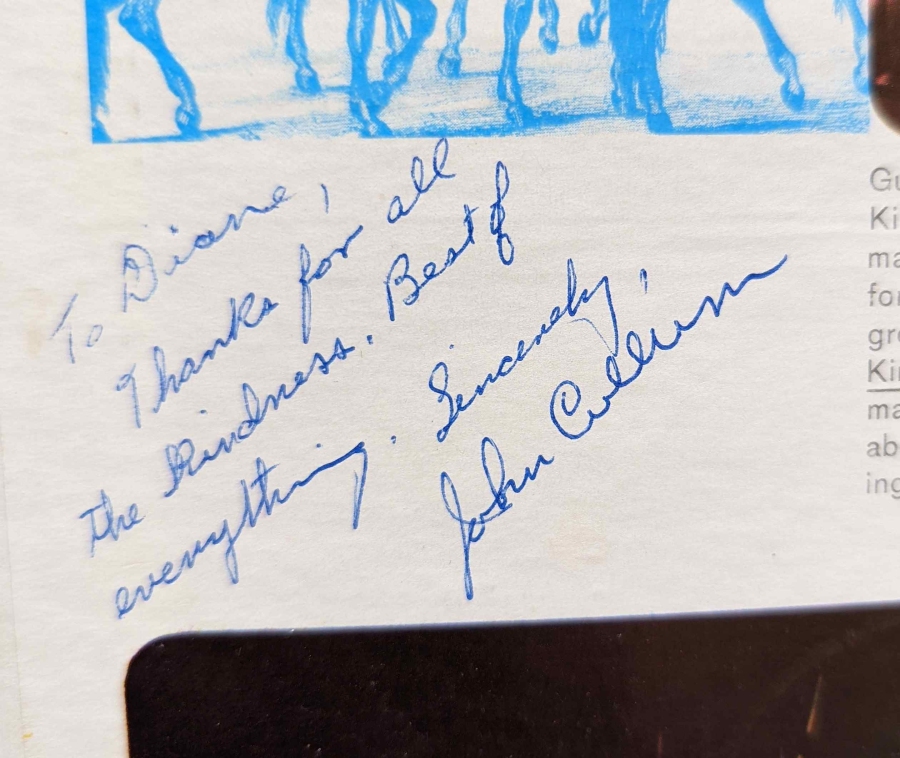 To Diane,
Thanks for all
the kindness. Best of
everything. Sincerely,
John Cullum
Gu
Ki
ma
for
gro
Kin
ma
ab
ing